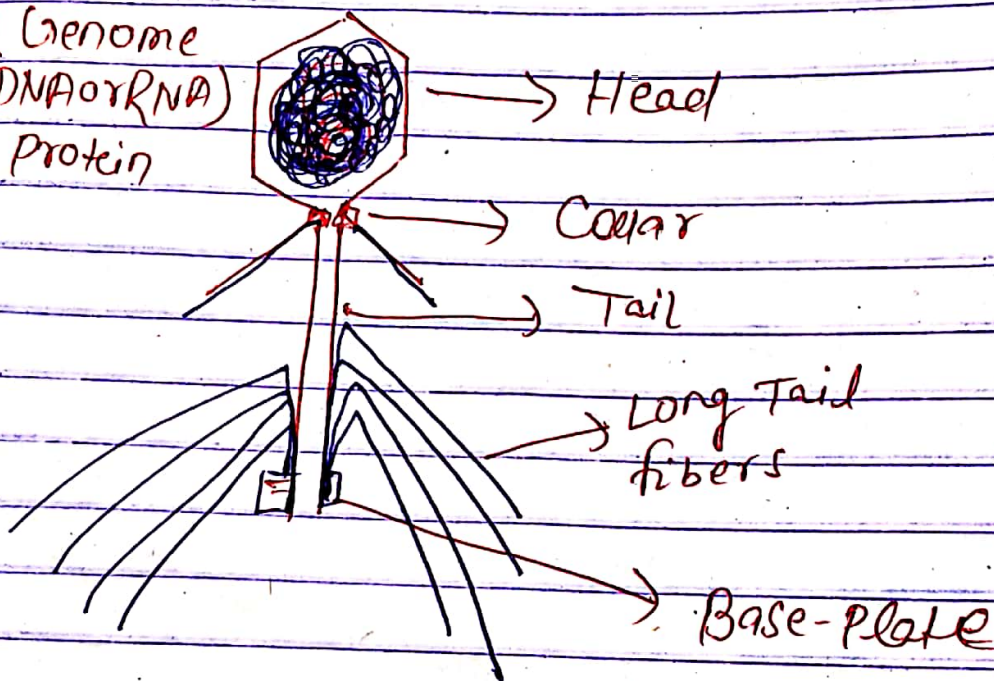 Genome
DNA or RNA)
Protein
Head
Collar
Tail
Long Tail
fibers
Base-Plate